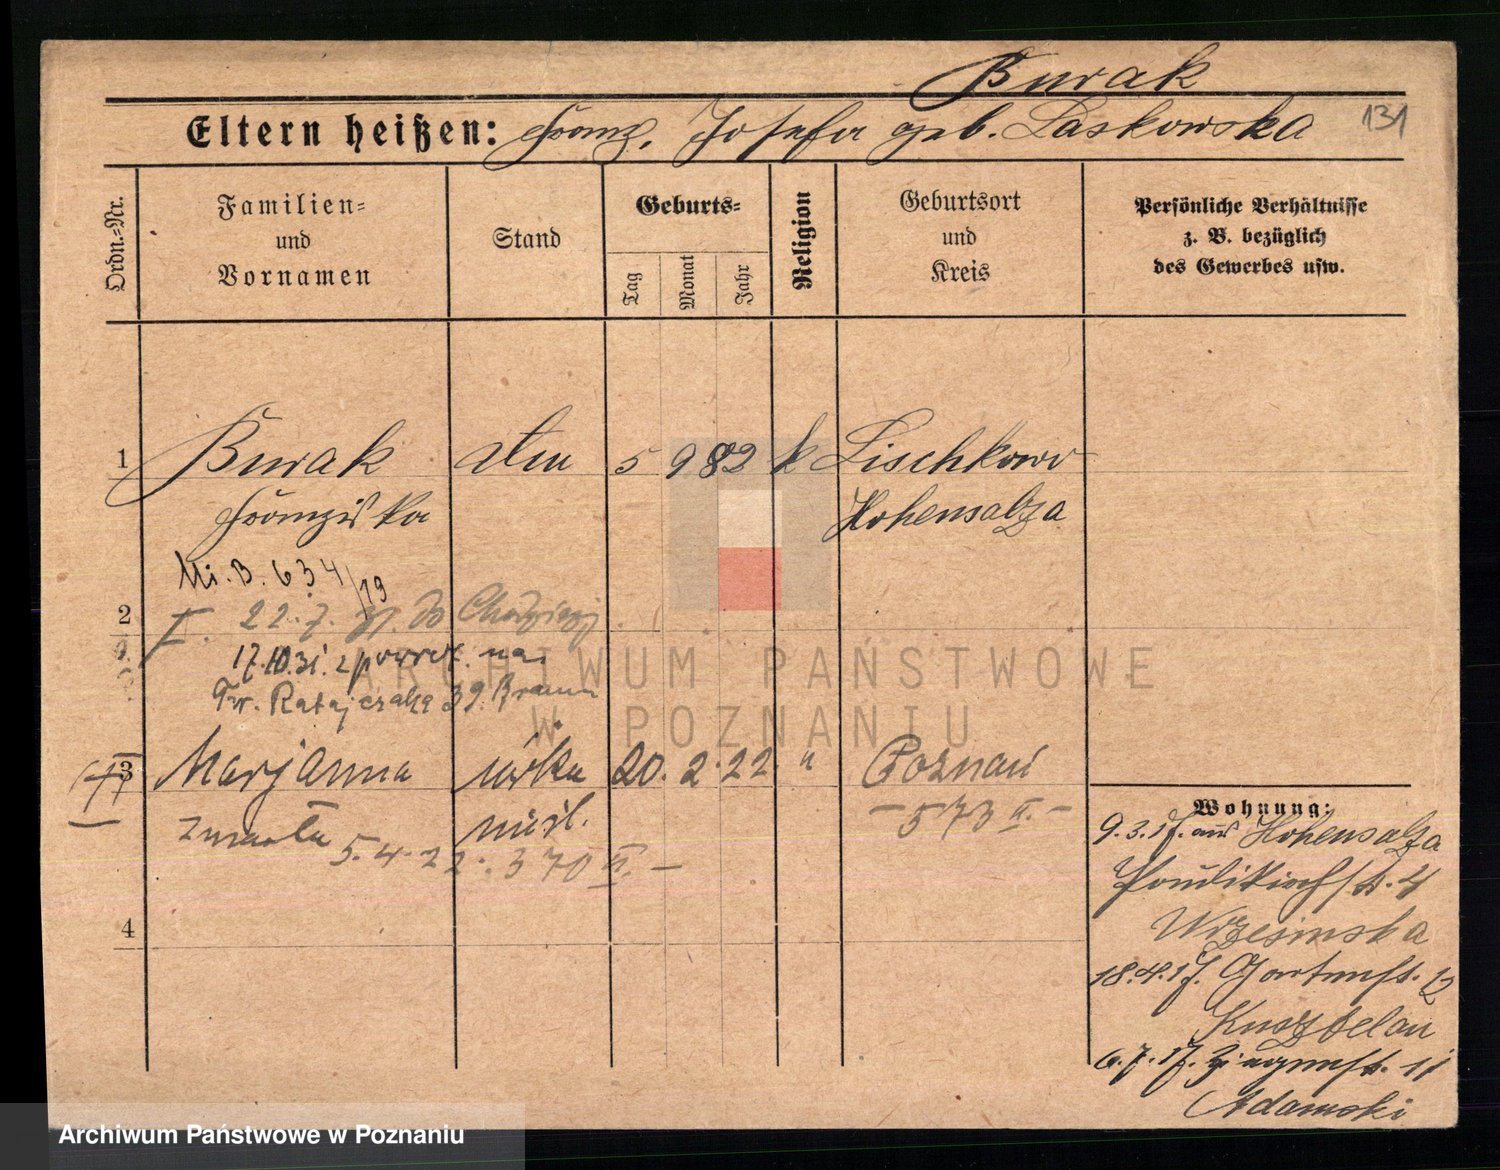 Burak
131
Eltern heißen: Franz, Josefa geb. Laskowska
Ordn.-Nr.
Familien-
und
Vornamen
Stand
Geburts-
Tag
Monat
Jahr
Religion
Geburtsort
und
Kreis
Persönliche Verhältnisse
z. B. bezüglich
des Gewerbes usw.
1 Burak 5 9 82 k Lischkowo
Franziska Hohensalza
Mi. B. 634/19
2 I. 22.7. do Chodzieży
17.10.31. z powrot. na
Fr. Ratajczaka 39.
3 Marjanna córka 20. 2. 22. " Poznań
zmarła nieśl. – 573 II. –
5.4.22. 370 II. –
4
Wohnung:
9.3.17. aus Hohensalza
4
Wrzesinska
18.4.17. Gartenst. 12
Kusztelan
6.7.17. 11
Adamski
ARCHIWUM PAŃSTWOWE
W POZNANIU
Archiwum Państwowe w Poznaniu